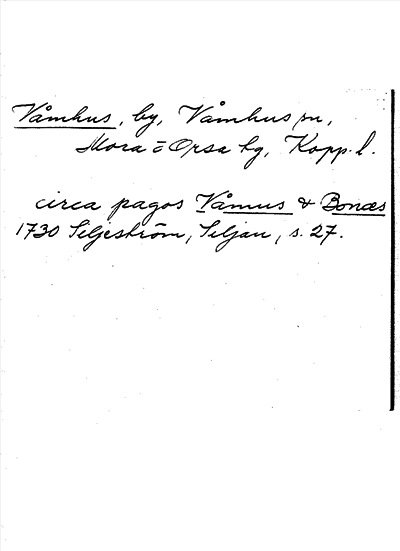 Våmhus, by, Våmhus sn,
Mora o Orsa hg, Kopp. l.
circa pagos Våmus & Bonæs
1730 Siljeström, Siljan, s. 27.